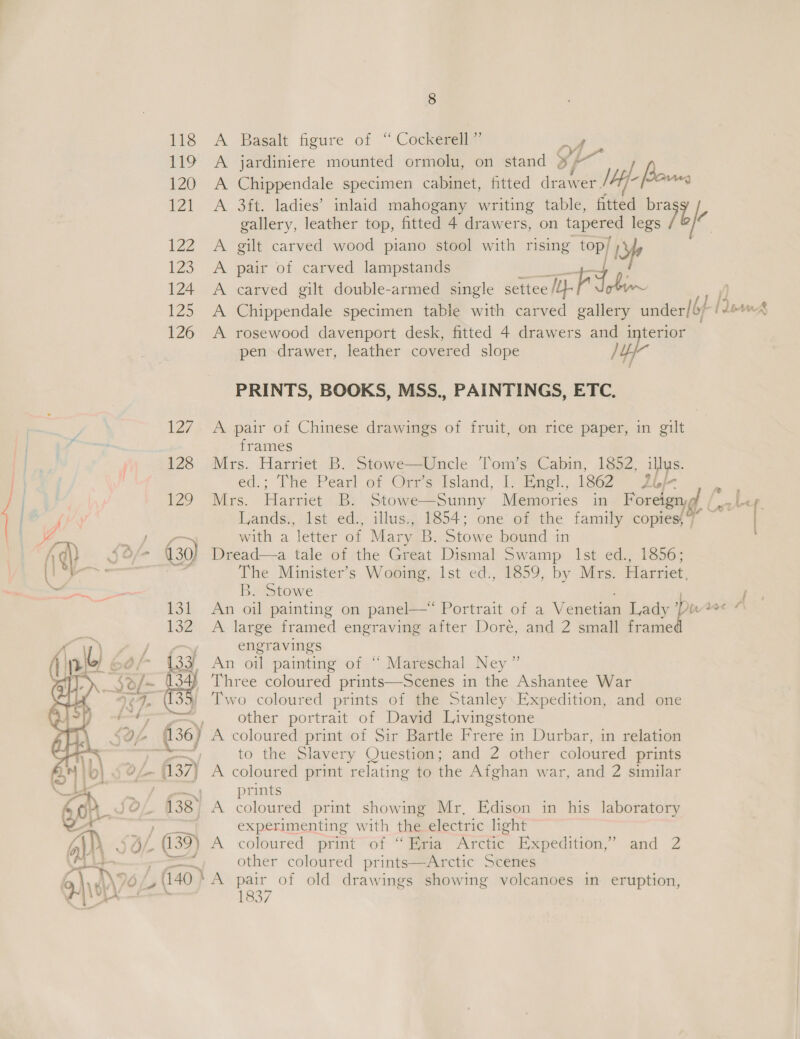 8
118 A Basalt figure of “ Cockerell ”
119 A jardiniere mounted ormolu, on stand
120 A Chippendale specimen cabinet, fitted drawer
121 A 3ft. ladies’ inlaid mahogany writing table, fitted brassy
gallery, leather top, fitted 4 drawers, on tapered legs
122 A gilt carved wood piano stool with rising top
123 A pair of carved lampstands
124 A carved gilt double-armed single settee
125 A Chippendale specimen table with carved gallery under
126 A rosewood davenport desk, fitted 4 drawers and interior
pen drawer, leather covered slope
PRINTS, BOOKS, MSS., PAINTINGS, ETC.
127 A pair of Chinese drawings of fruit, on rice paper, in gilt
frames
128 Mrs. Harriet B. Stowe—Uncle Tom’s Cabin, 1852, illus.
ed.; The Pearl of Orr’s Island, I. Engl., 1862
129 Mrs. Harriet B. Stowe—Sunny Memories in Foreign
Lands., 1st ed., illus., 1854; one of the family copies,
with a letter of Mary B. Stowe bound in
50/- 130 Dread—a tale of the Great Dismal Swamp 1st ed., 1856;
The Minister’s Wooing, 1st ed., 1859, by Mrs. Harriet,
B. Stowe
131 An oil painting on panel—“ Portrait of a Venetian Lady ”
132 A large framed engraving after Doré, and 2 small framed
engravings
60/- 133 An oil painting of “ Mareschal Ney ”
50/- 134 Three coloured prints—Scenes in the Ashantee War
135 Two coloured prints of the Stanley Expedition, and one
other portrait of David Livingstone
50/- 136 A coloured print of Sir Bartle Frere in Durbar, in relation
to the Slavery Question; and 2 other coloured prints
50/- 137 A coloured print relating to the Afghan war, and 2 similar
prints
50/- 138 A coloured print showing Mr. Edison in his laboratory
experimenting with the electric light
50/- 139 A coloured print of “ Eria Arctic Expedition,” and 2
other coloured prints—Arctic Scenes
70/- 140 A pair of old drawings showing volcanoes in eruption,
1837